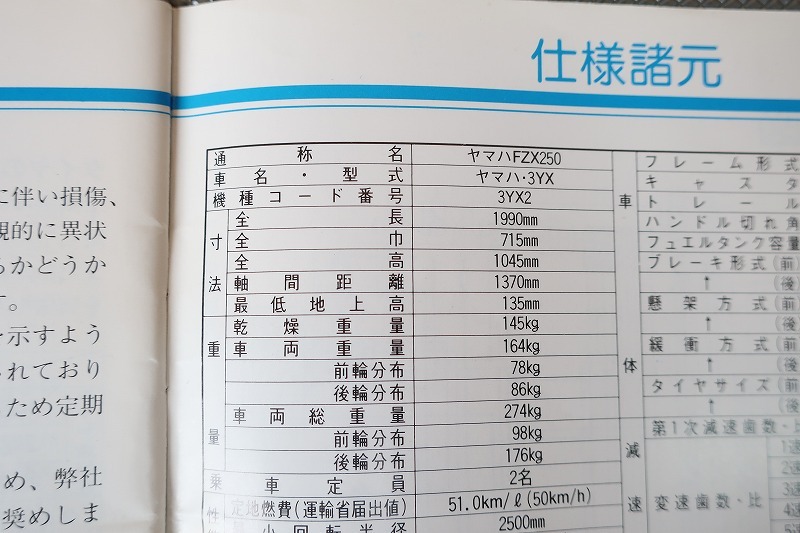 仕様諸元
に伴い損傷、
観的に異状
るかどうか
す。
を示すよう
られており
ため定期
め、弊社
奨めしま
通称名 ヤマハFZX250
車名・型式 ヤマハ・3YX
機種コード番号 3YX2
寸法
全長 1990mm
全巾 715mm
全高 1045mm
軸間距離 1370mm
最低地上高 135mm
重量
乾燥重量 145kg
車両重量 164kg
前輪分布 78kg
後輪分布 86kg
車両総重量 274kg
前輪分布 98kg
後輪分布 176kg
乗車定員 2名
性
定地燃費(運輸省届出値) 51.0km/ℓ(50km/h)
最小回転半径 2500mm
車体
フレーム形式
キャスタ
トレール
ハンドル切れ角
フュエルタンク容量
ブレーキ形式(前
↑(後
懸架方式(前
↑(後
緩衝方式(前
↑(後
タイヤサイズ(前
↑(後
減速
第1次減速歯数・比
変速歯数・比
1速
2速
3速
4速
5速